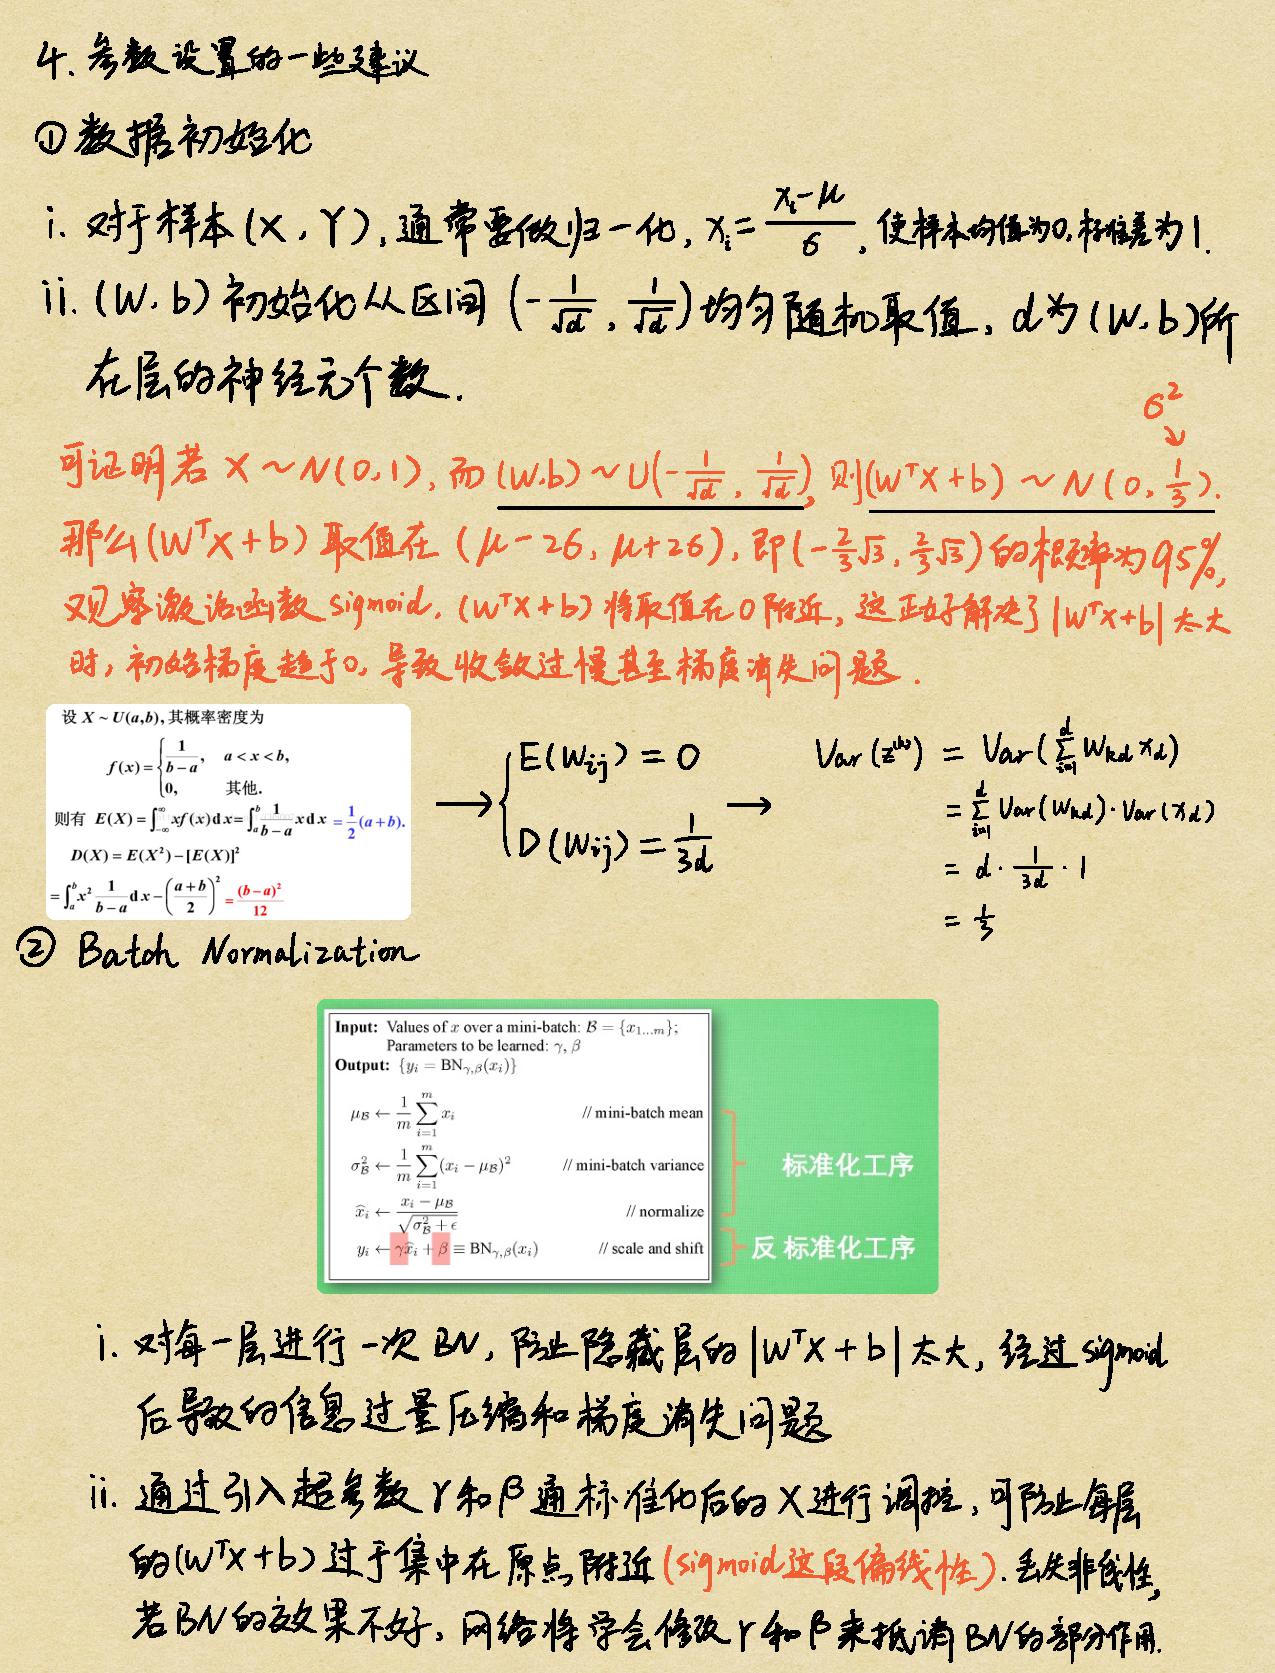 4. 参数设置的一些建议
① 数据初始化
i. 对于样本(X, Y), 通常要做归一化, xᵢ = (xᵢ-μ)/σ, 使样本均值为0, 标准差为1.
ii. (W, b) 初始化从区间 (-1/√d, 1/√d) 均匀随机取值, d为(W, b)所
在层的神经元个数.
σ²
↓
可证明若 X ~ N(0,1), 而 (W,b) ~ U(-1/√d, 1/√d), 则(WᵀX+b) ~ N(0, 1/3).
那么(WᵀX+b) 取值在 (μ-2σ, μ+2σ), 即(-2/3√3, 2/3√3)的概率为95%,
观察激活函数 sigmoid, (WᵀX+b) 将取值在0附近, 这正好解决了|WᵀX+b|太大
时, 初始梯度趋于0, 导致收敛过慢甚至梯度消失问题.
设 X ~ U(a,b), 其概率密度为
f(x) = { 1/(b-a), a < x < b,
0, 其他.
则有 E(X) = ∫_{-∞}^{∞} xf(x)dx = ∫_a^b 1/(b-a) xdx = 1/2(a+b).
D(X) = E(X²) - [E(X)]²
= ∫_a^b x² 1/(b-a) dx - ((a+b)/2)² = (b-a)²/12
→ { E(Wij) = 0
D(Wij) = 1/3d
→ Var(z⁽ᵏ⁾) = Var(∑_{i=1}^{d} W_{kd} x_d)
= ∑_{i=1}^{d} Var(W_{kd})·Var(x_d)
= d · 1/3d · 1
= 1/3
② Batch Normalization
Input: Values of x over a mini-batch: B = {x₁...ₘ};
Parameters to be learned: γ, β
Output: {yᵢ = BN_{γ,β}(xᵢ)}
μ_B ← 1/m ∑_{i=1}^{m} xᵢ // mini-batch mean
σ²_B ← 1/m ∑_{i=1}^{m} (xᵢ - μ_B)² // mini-batch variance
x̂ᵢ ← (xᵢ - μ_B)/√(σ²_B + ϵ) // normalize
yᵢ ← γx̂ᵢ + β ≡ BN_{γ,β}(xᵢ) // scale and shift
标准化工序
反 标准化工序
i. 对每一层进行一次 BN, 防止隐藏层的 |WᵀX+b| 太大, 经过 sigmoid
后导致的信息过量压缩和梯度消失问题
ii. 通过引入超参数 γ和β 通标准化后的X进行调控, 可防止每层
的(WᵀX+b)过于集中在原点附近(sigmoid这段偏线性). 丢失非线性,
若BN的效果不好, 网络将学会修改γ和β来抵消BN的部分作用.